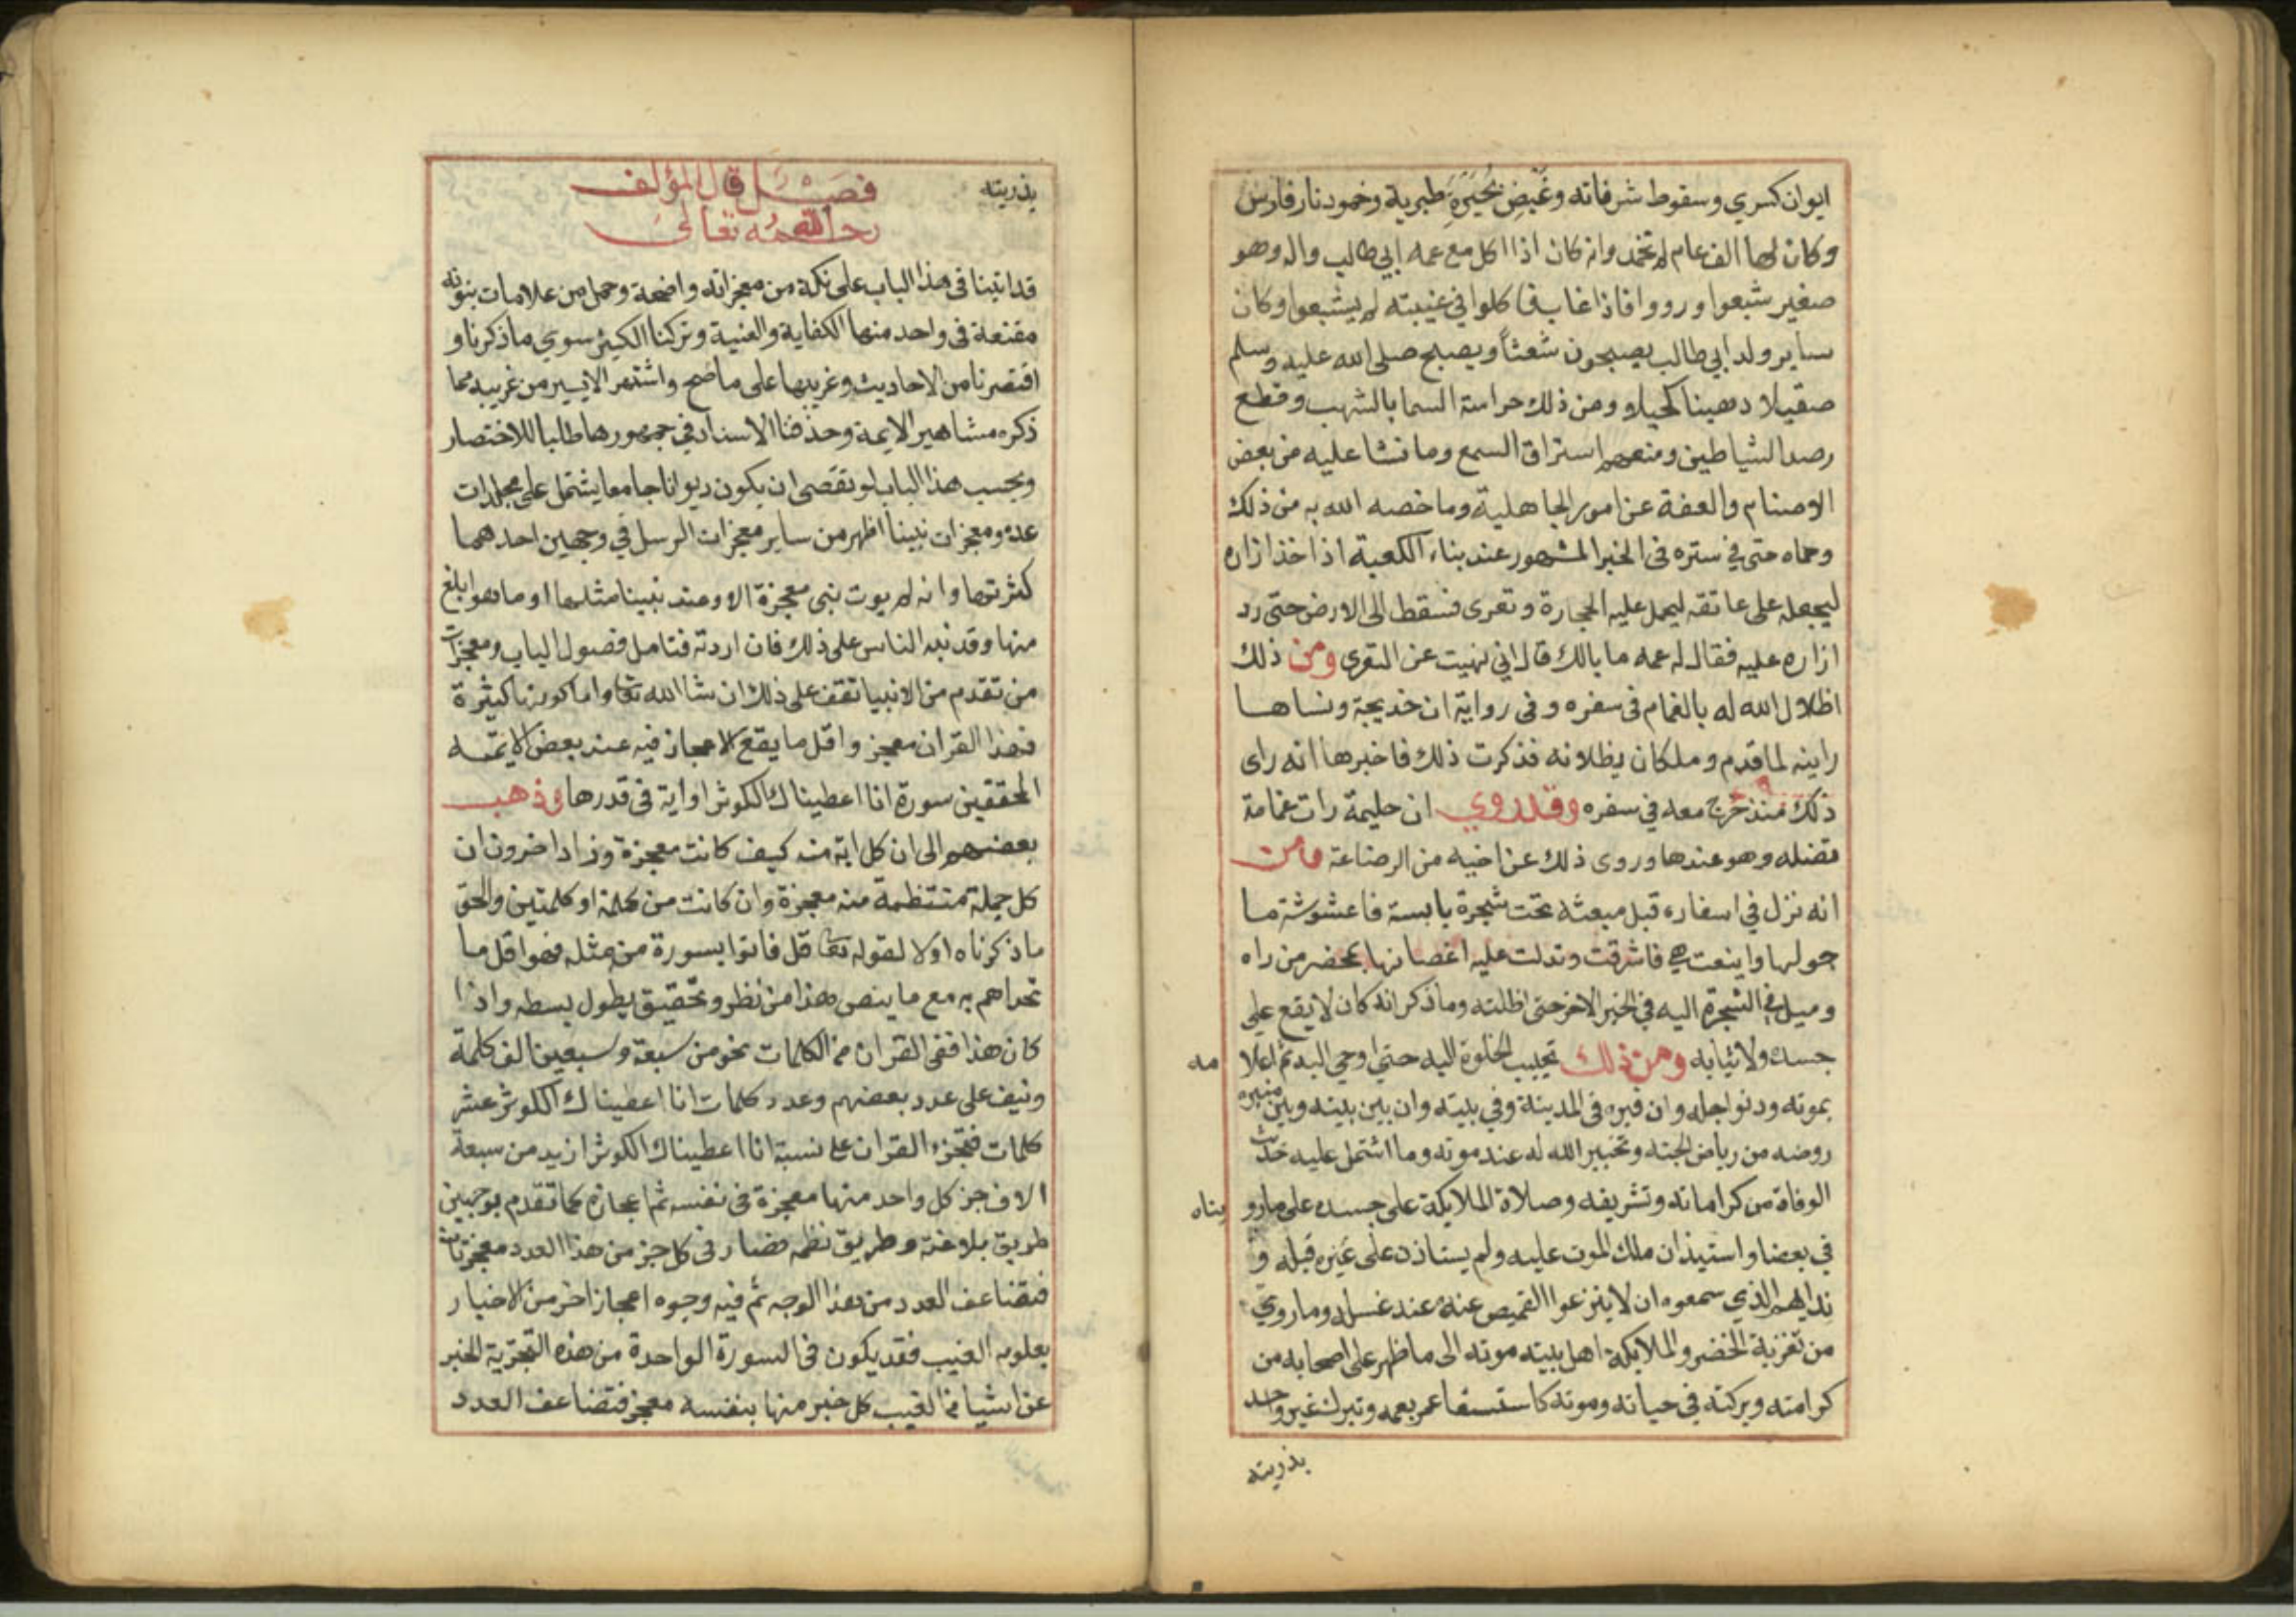 ايوان كسري وسقوط شرفاته وغيض بحيرة طبرية وخمود نار فارس
وكان لها الف عام لم تخمد وانه كان اذا اكل مع عمه ابي طالب واله وهو
صغير شبعوا ورووا فاذا غاب فاكلوا في غيبته لم يشبعوا وكان
ساير ولد ابي طالب يصبحون شعثا ويصبح صلى الله عليه وسلم
صقيلا دهينا كحيلا ومن ذلك حراسة السما بالشهب وقطع
رصد الشياطين ومنعهم استراق السمع وما نشا عليه من بغض
الاصنام والعفة عن امور الجاهلية وما خصه الله به من ذلك
وحماه حتى في ستره فى الخبر المشهور عند بناء الكعبة اذ اخذ ازاره
ليجعله على عاتقه ليحمل عليه الحجارة وتعرى فسقط الى الارض حتى رد
ازاره عليه فقال له عمه ما بالك قال اني نهيت عن التعرى ومن ذلك
اظلال الله له بالغمام فى سفره وفى رواية ان خديجة ونساها
راينه لما قدم وملكان يظلانه فذكرت ذلك فاخبرها انه راى
ذلك منذ خرج معه في سفره وقد روي ان حليمة رات غمامة
تضله وهو عندها وروى ذلك عن اخيه من الرضاعة ومن
انه نزل في اسفاره قبل مبعثه تحت شجرة يابسة فاعشوشة ما
حولها واينعت هي فاشرقت وتدلت عليه اغصانها بمحضر من راه
وميل في الشجرة اليه في الخبر الاخر حتى اظلته وما ذكر انه كان لا يقع على
جسده ولا ثيابه ومن ذلك تحبيب الخلوة اليه حتي اوحي اليه ثم اعلا
مه
بموته ودنو اجله وان قبره فى المدينة وفي بيته وان بين بيته وبين منبره
روضه من رياض الجنه وتخيير الله له عند موته وما اشتمل عليه حديث
الوفاة من كراماته وتشريفه وصلاة الملايكة على جسده على مارو
يناه
في بعضا واستيذان ملك الموت عليه ولم يستاذن على غيره قبله و
ندايهم الذي سمعوه ان لا ينزعوا القميص عنه عند غسله وما روي
من تعزية الخضر والملايكة اهل بيته موته الى ما ظهر على اصحابه من
كرامته وبركته في حياته وموته كاستسقا عمر بعمه وتبرك غير واحد
بذريته
بذريته
فصل قال المؤلف
رحمه الله تعالى
قد اتينا فى هذا الباب على نكة من معجزاته واضحة وجمل من علامات نبوته
مقنعة فى واحد منها الكفاية والغنية وتركنا الكثير سوي ما ذكرنا و
اقتصرنا من الاحاديث وغريبها على ما صح واشتهر الا يسير من غريبه مما
ذكره مشاهير الايمة وحذفنا الاسناد في جمهورها طلبا للاختصار
وبحسب هذا الباب لو تقصى ان يكون ديوانا جامعا يشتمل على مجلدات
عده ومعجزات نبينا اظهر من ساير معجزات الرسل في وجهين احدهما
كثرتها وانه لم يوت نبي معجزة الا وعند نبينا مثلها او ما هو ابلغ
منها وقد نبه الناس على ذلك فان اردته فتامل فصول الباب ومعجزات
من تقدم من الانبيا تقف على ذلك ان شا الله تعا واما كونها كثيرة
فهذا القران معجز واقل ما يقع الاعجاز فيه عند بعض الايمة
المحققين سورة انا اعطيناك الكوثر او اية فى قدرها وذهب
بعضهم الى ان كل اية منه كيف كانت معجزة وزاد اخرون ان
كل جملة منتظمة منه معجزة وان كانت من كلمة او كلمتين والحق
ما ذكرناه اولا لقوله تعا قل فاتوا بسورة من مثله فهو اقل ما
تحداهم به مع ما ينصر هذا من نظر وتحقيق يطول بسطه واذا
كان هذا ففى القران من الكلمات نحو من سبعة وسبعين الف كلمة
ونيف على عدد بعضهم وعدد كلمات انا اعطيناك الكوثر عشر
كلمات فتجزء القران على نسبة انا اعطيناك الكوثر ازيد من سبعة
الاف جز كل واحد منها معجزة فى نفسه ثم اعجازه كما تقدم بوجهين
طريق بلاغته وطريق نظمه فصار فى كل جز من هذا العدد معجزتان
فتضاعف العدد من هذا الوجه ثم فيه وجوه اعجاز اخر من الاخبار
بعلوم الغيب فقد يكون فى السورة الواحدة من هذه التجزية الخبر
عن اشيا من الغيب كل خبر منها بنفسه معجز فتضاعف العدد